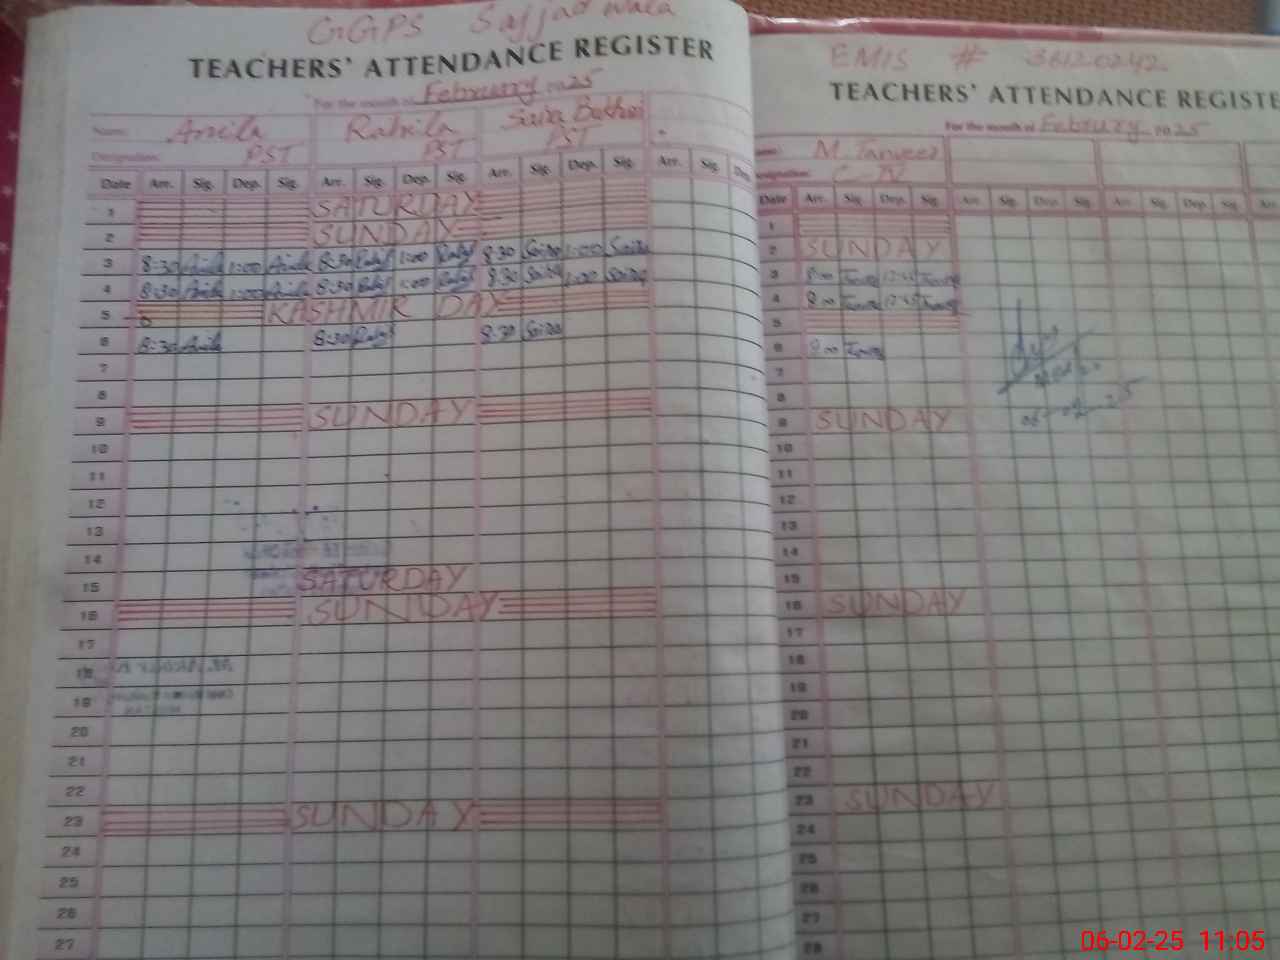 GGPS Sajjad wala
TEACHERS' ATTENDANCE REGISTER
For the month of February 2025
Name: Anila Rahila Saira Bukhari
Designation: PST PST PST
Date Arr. Sig. Dep. Sig. Arr. Sig. Dep. Sig. Arr. Sig. Dep. Sig. Arr. Sig. Dep.
1 SATURDAY
2 SUNDAY
3 8:30 Anila 1:00 Anila 8:30 1:00 8:30 Saira 1:00 Saira
4 8:30 Anila 1:00 Anila 8:30 1:00 8:30 Saira 1:00 Saira
5 KASHMIR DAY
6 8:30 Anila 8:30 8:30 Saira
7
8
9 SUNDAY
10
11
12
13
14
15 SATURDAY
16 SUNDAY
17
18
19
20
21
22
23 SUNDAY
24
25
26
27
EMIS # 36120242
TEACHERS' ATTENDANCE REGISTE
For the month of Februry 2025
M. Tanveer
Designation:
Date Arr. Sig. Dep. Sig. Arr. Sig. Dep. Sig. Arr. Sig. Dep. Sig. Arr.
1
2 SUNDAY
3 8:00 12:45
4 8:00 12:45
5
6 8:00
7
8
9 SUNDAY
06-02-25
10
11
12
13
14
15
16 SUNDAY
17
18
19
20
21
22
23 SUNDAY
24
25
26
27
28
06-02-25 11:05